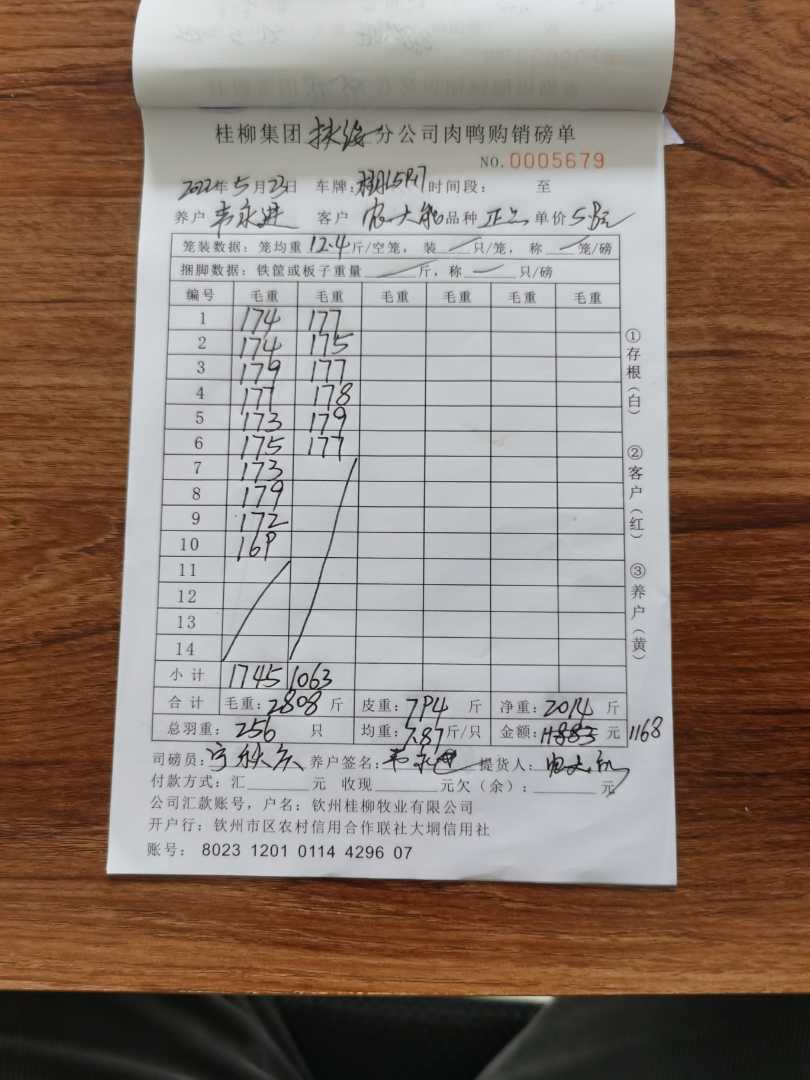 桂柳集团 分公司肉鸭购销磅单
NO. 0005679
2022年5月23日 车牌: 时间段: 至
养户 韦永进 客户 农大 品种 正 单价 5.8元
笼装数据: 笼均重 12.4 斤/空笼, 装 只/笼, 称 笼/磅
捆脚数据: 铁筐或板子重量 斤, 称 只/磅
编号 毛重 毛重 毛重 毛重 毛重 毛重
1 174 177
2 174 175
3 179 177
4 177 178
5 173 179
6 175 177
7 173
8 179
9 172
10 169
11
12
13
14
小计 1745 1063
合计 毛重: 2808 斤 皮重: 794 斤 净重: 2014 斤
总羽重: 256 只 均重: 7.87 斤/只 金额: 元 1168
司磅员: 养户签名: 韦永进 提货人:
付款方式: 汇 元 收现 元欠(余): 元
公司汇款账号, 户名: 钦州桂柳牧业有限公司
开户行: 钦州市区农村信用合作联社大垌信用社
账号: 8023 1201 0114 4296 07
①存根(白) ②客户(红) ③养户(黄)